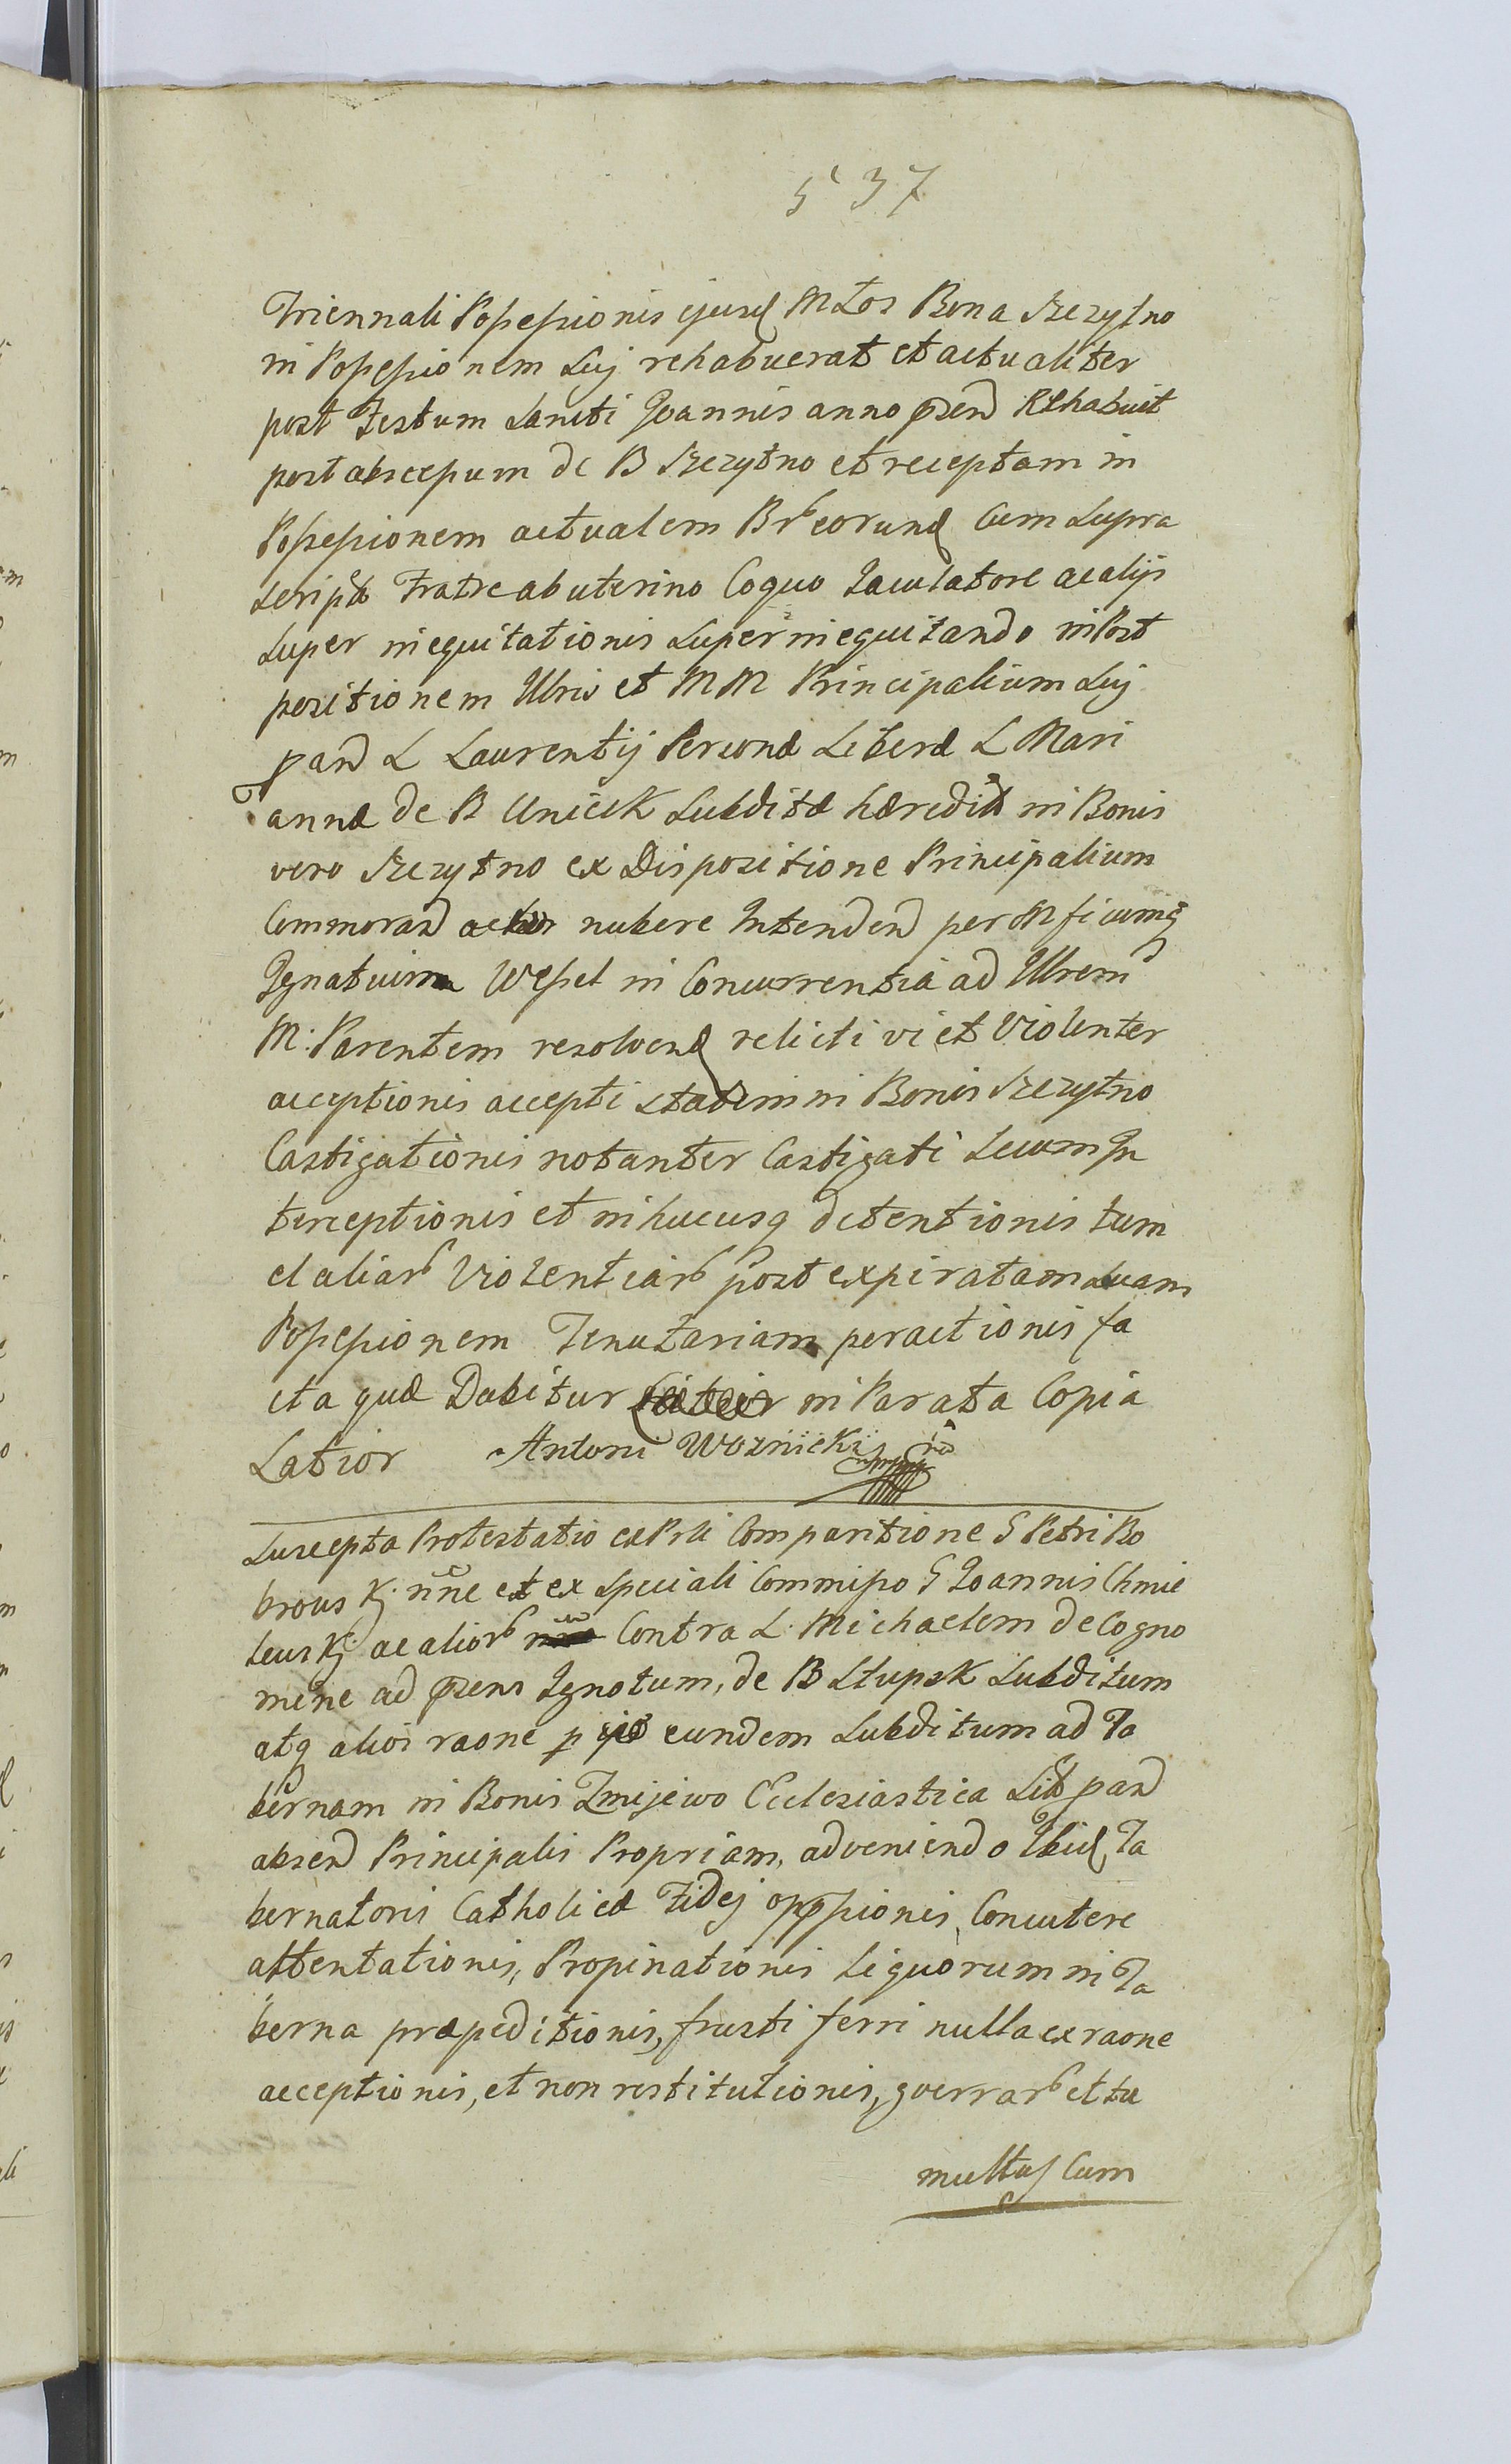 537
Triennali Possessionis ejusd MLos Bona Szczytno
in Possessionem Suj rehabuerat et actualiter
post Festum Sancti Joannis anno psend Rehabuit
post abscessum de B Szczytno et receptam in
Possessionem actualem Br eorund Cum Supra
scripto Fratre ab uterino Coquo Jaculatore ac alijs
super inequitationis Super inequitando in Post
positionem Ulris et MM Principalium Suj
pand L Laurentij Personæ Liberæ L Mari
annæ de B Unieck Subditæ hæredit in Bonis
vero Szczytno ex Dispositione Principalium
Commorand nubere Intendend per Mficumq
Ignatium Wessel in Concurrentia ad Ulrem
M: Parentem resolvend relicti vi et Violenter
acceptionis accepti statim in Bonis Szczytno
Castigationis notanter Castigati Secum In
terceptionis et in hucusq detentionis tum
et aliar Violentiar post expiratam suam
Possessionem Tenutariam peractionis fa
cta quæ Dabitur in Parata Copia
Latior Antoni Woznicki mp
Suscepta Protestatio ex Prli Comparitione G Petri Bo
brows Kj nne et ex Speciali Commisso G Joannis Chmie
lews Kj ac alior Contra L Michaelem de Cogno
mine ad psens Ignotum, de B Słupsk Subditum
atq alios raone p eundem Subditum ad Ta
bernam in Bonis Żmijewo Ecclesiastica Sit pand
absend Principalis Propriam, adveniendo Ibid Ta
bernatoris Catholicæ Fidej oppssionis, Concutere
attentationis, Propinationis Liquorum in Ta
berna præpeditionis, frusti ferri nulla ex raone
acceptionis, et non restitutionis, guerrar et tu
multus Cum